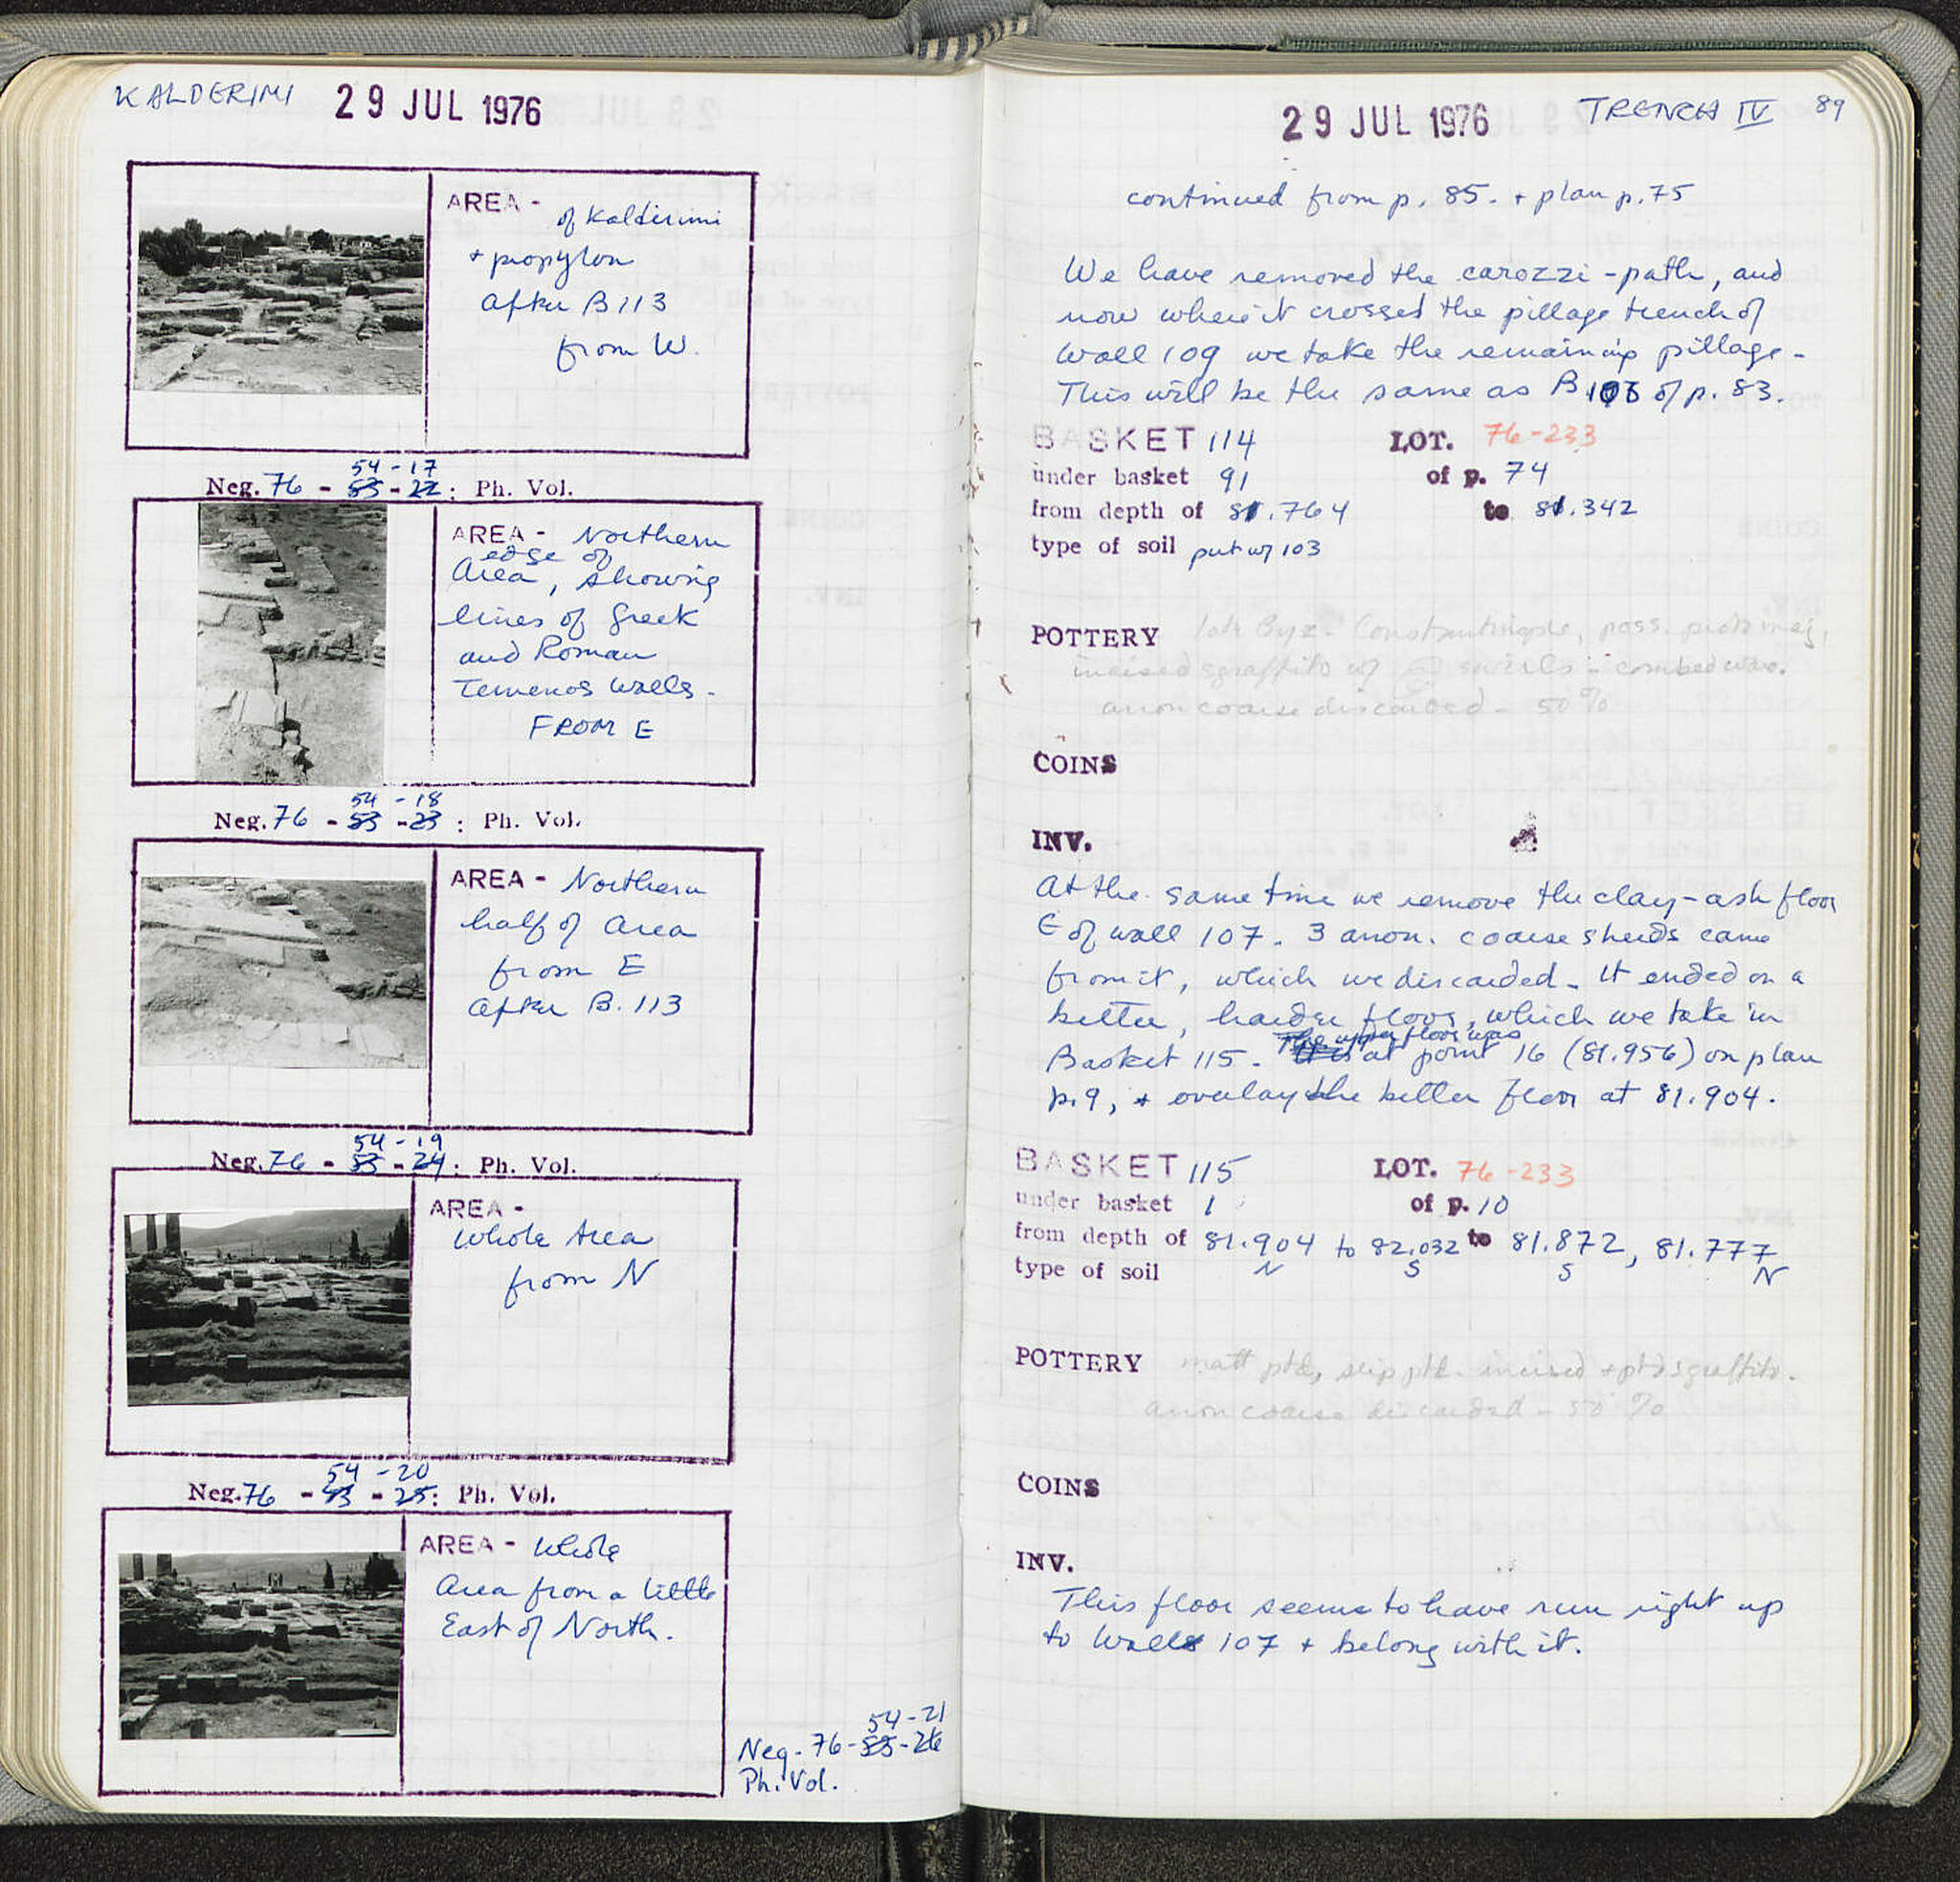 KALDERIMI 29 JUL 1976
AREA - of Kalderimi
+ propylon
after B 113
from W.
54 - 17
Neg. 76 - 53 - 22 : Ph. Vol.
AREA - Northern
edge of
Area, showing
lines of Greek
and Roman
Temenos walls.
FROM E
54 - 18
Neg. 76 - 53 - 23 : Ph. Vol.
AREA - Northern
half of Area
from E
after B. 113
54 - 19
Neg. 76 - 53 - 24 : Ph. Vol.
AREA -
Whole Area
from N
54 - 20
Neg. 76 - 53 - 25 : Ph. Vol.
AREA - Whole
Area from a little
East of North.
54 - 21
Neg. 76 - 53 - 26
Ph. Vol.
29 JUL 1976 TRENCH IV 89
continued from p. 85. + plan p. 75
We have removed the carozzi-path, and
now where it crossed the pillage trench of
Wall 109 we take the remaining pillage -
This will be the same as B 103 of p. 83.
BASKET 114 LOT. 76-233
under basket 91 of p. 74
from depth of 81.764 to 81.342
type of soil put w/ 103
POTTERY late Byz. Constantinople, poss. proto maj,
incised sgraffito w/ swirls - combed ware.
anon coarse discarded - 50%
COINS
INV.
At the same time we remove the clay-ash floor
E of wall 107. 3 anon. coarse sherds came
from it, which we discarded. It ended on a
better, harder floor, which we take in
The upper floor was
Basket 115. It is at point 16 (81.956) on plan
p. 9, + overlay the better floor at 81.904.
BASKET 115 LOT. 76-233
under basket 1 of p. 10
from depth of 81.904 to 82.032 to 81.872, 81.777
type of soil N S S N
POTTERY matt ptd, slip ptd. incised + ptd sgraffito.
anon coarse discarded - 50%
COINS
INV.
This floor seems to have run right up
to Wall 107 + belong with it.